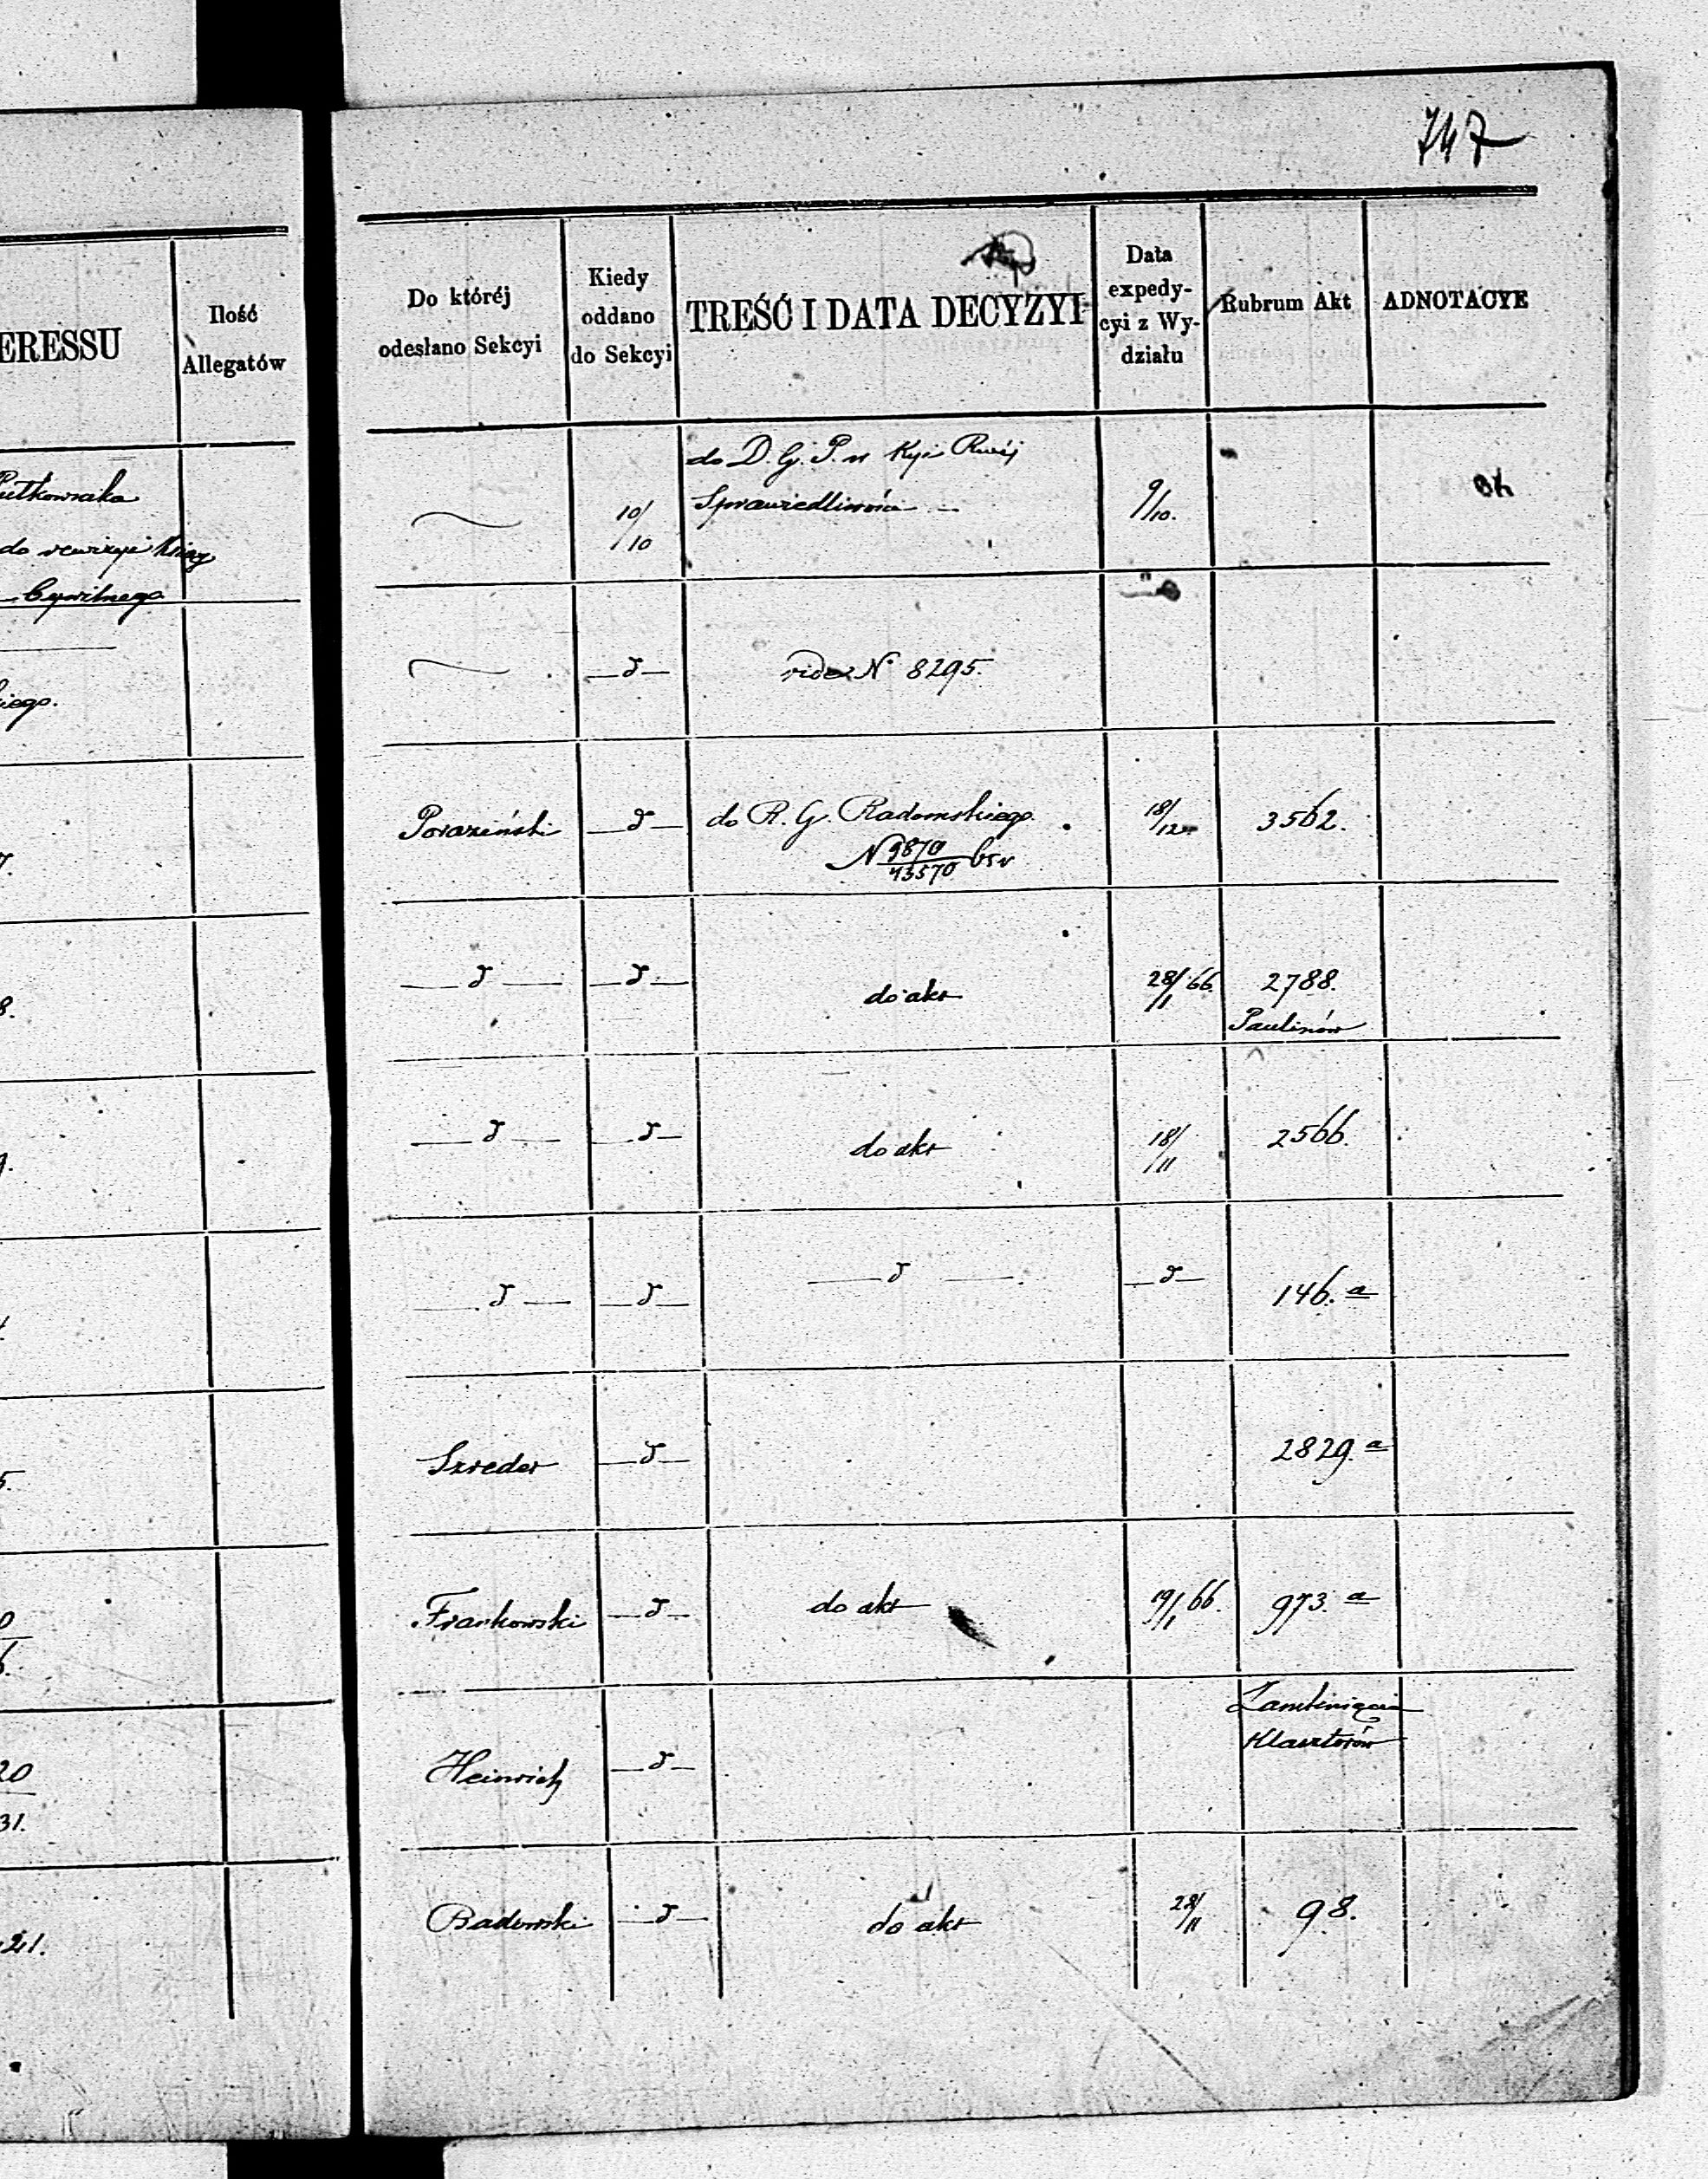 747
ERESSU
Ilość
Allegatów
do rewizyi Ksiąg
Cywilnego
kiego.
7.
8.
9.
5.
20
31.
21.
Do któréj
odesłano Sekcyi
Kiedy
oddano
do Sekcyi
TREŚĆ I DATA DECYZYI
Data
expedy-
cyi z Wy-
działu
Rubrum Akt
ADNOTACYE
10/10
do D. G. P. w
Sprawiedliwości
9/10.
—d—
vide N° 8295.
Poraziński
—d—
do R. G. Radomskiego.
N 9870/43570
18/12
3562.
—d—
—d—
do akt
28/11 66.
2788.
Paulinów
—d—
—d—
do akt
18/11
2566.
—d—
—d—
—d—
—d—
146. a
Szreder
—d—
2829. a
Frankowski
—d—
do akt
19/1 66.
973. a
Heinrich
—d—
Zamknięcia
Klasztorów
Badowski
—d—
do akt
28/11
98.